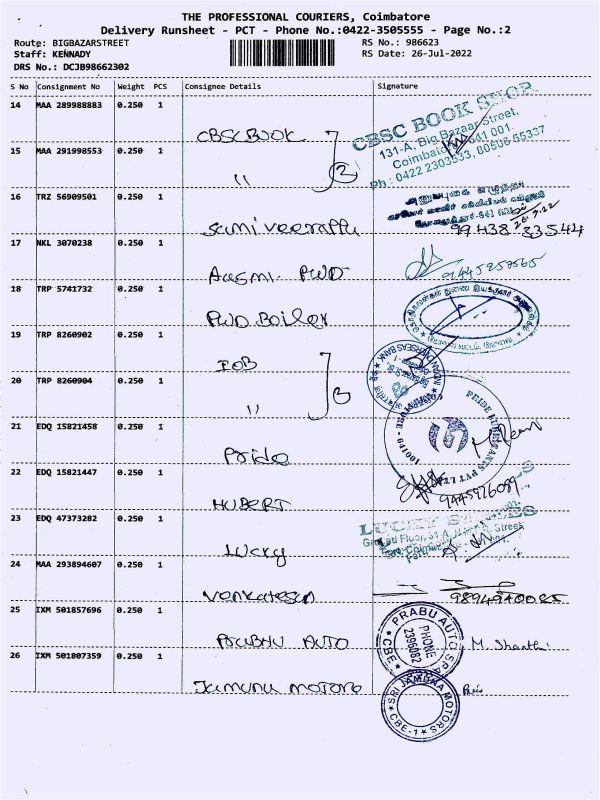 THE PROFESSIONAL COURIERS, Coimbatore
Delivery Runsheet - PCT - Phone No.:0422-3505555 - Page No.:2
Route: BIGBAZARSTREET
Staff: KENNADY
DRS No.: DCJB98662302
RS No.: 986623
RS Date: 26-Jul-2022
S No Consignment No Weight PCS Consignee Details Signature
14 MAA 289988883 0.250 1 CBSC BOOK
CBSC BOOK SHOP
131-A, Big Bazaar Street,
Coimbatore 641 001.
Ph : 0422 2303533, 80506 55337
15 MAA 291998553 0.250 1 " 2
16 TRZ 56909501 0.250 1 Samiveerappa
26.7.22
99438 33544
17 NKL 3070238 0.250 1 Aasmi PWD
18 TRP 5741732 0.250 1 PWD Boiler
19 TRP 8260902 0.250 1 IOB
INDIAN OVERSEAS BANK
20 TRP 8260904 0.250 1 " 2
21 EDQ 15821458 0.250 1 Pride
PRIDE
PVT LTD
641001
22 EDQ 15821447 0.250 1 HUBERT
9445926089
23 EDQ 47373282 0.250 1 Lucky
LUCKY
Street
24 MAA 293894607 0.250 1 Venkatesan
25 IXM 501857696 0.250 1 PRABHU AUTO
PRABU AUTO SPARES
CBE
PHONE
2396082
M. Shanthi
26 IXM 501807359 0.250 1 Jamuna motors
SRI JAMUNA MOTORS
CBE-1